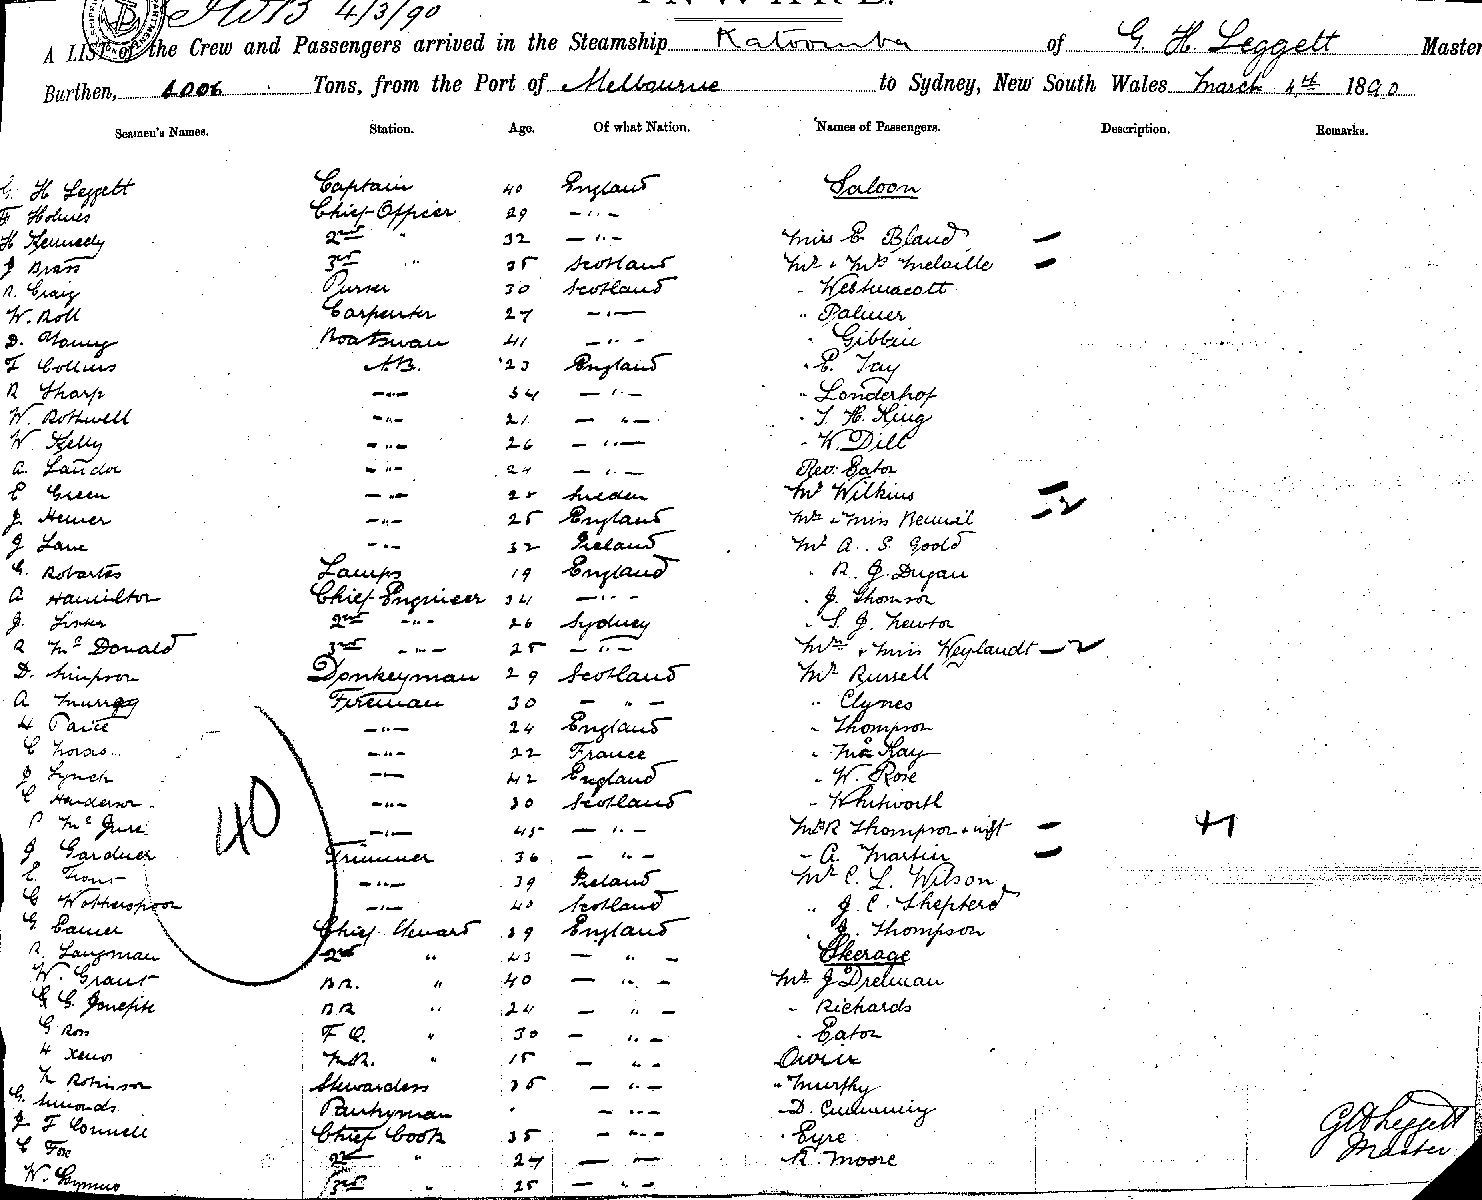 INWARD.
HWB 4/3/90
A LIST of the Crew and Passengers arrived in the Steamship Katoomba of G. H. Leggett Master
Burthen, 1006 Tons, from the Port of Melbourne to Sydney, New South Wales March 4th 1890
Seamen's Names. Station. Age. Of what Nation. Names of Passengers. Description. Remarks.
G. H Leggett Captain 40 England Saloon
F Holmes Chief Officer 29 — " —
H Kennedy 2nd " 32 — " — Miss E. Bland —
J Brass 3rd " 35 Scotland Mr & Mrs Melville —
R. Craig Purser 30 Scotland " Westmacott
W. Roll Carpenter 27 — " — " Palmer
D. Young Boatswan 41 — " — "
F Collins A.B. 23 England " E. Tay
R Sharp — " — 34 — " — " Londerhof
W. Rothwell — " — 21 — " — " T. H. King
W Kelly — " — 26 — " — " W. Dill
A. Landor — " — 24 — " — Rev. Eator
E Green — " — Sweden Mr Wilkins —
J. Hewer — " — 25 England Mrs & Miss — 2
J Lane — " — 32 Ireland Mr A. S. Goold
G. Robartes Lamps 19 England " R. J. Dugan
A Hamilton Chief Engineer 34 — " — " J. Thomson
J. 2nd — " — 26 Sydney " S. J. Newton
R McDonald 3rd — " — 25 — " — Mrs & Miss Weylandt — 2
D. Simpson Donkeyman 29 Scotland Mr Russell
A Murray Fireman 30 — " — " Clynes
H — " — 24 England " Thompson
C — " — 22 France " McKay
J Lynch — " — 42 England " W. Rose
C Henderson — " — 30 Scotland " Whitworth
P — " — 45 — " — Mr R Thompson & wife — 47
J Gardner Trimmer 36 — " — " A. Martin —
E. — " — 39 Ireland Mr C. L. Wilson
G Wotherspoon — " — 40 Scotland " J. C. Shepherd
G. Eamer Chief Steward 39 England " J. Thompson
R. Langman 2nd " 43 — " — Steerage
W. Grant B.R. " 40 — " — Mr J Drennan
G. G. B R " 24 — " — " Richards
G Ross F C. " 30 — " — " Eator
H M.R. " 15 — " —
M Robinson Stewardess 35 — " — " Murphy
G. Simonds Pantryman " — " — " D. Cumming
J F Connell Chief Cook 35 — " — " Eyre
C Fox 2nd " 27 — " — " R. Moore
W. 3rd " 25 — " —
40
G H Leggett
Master